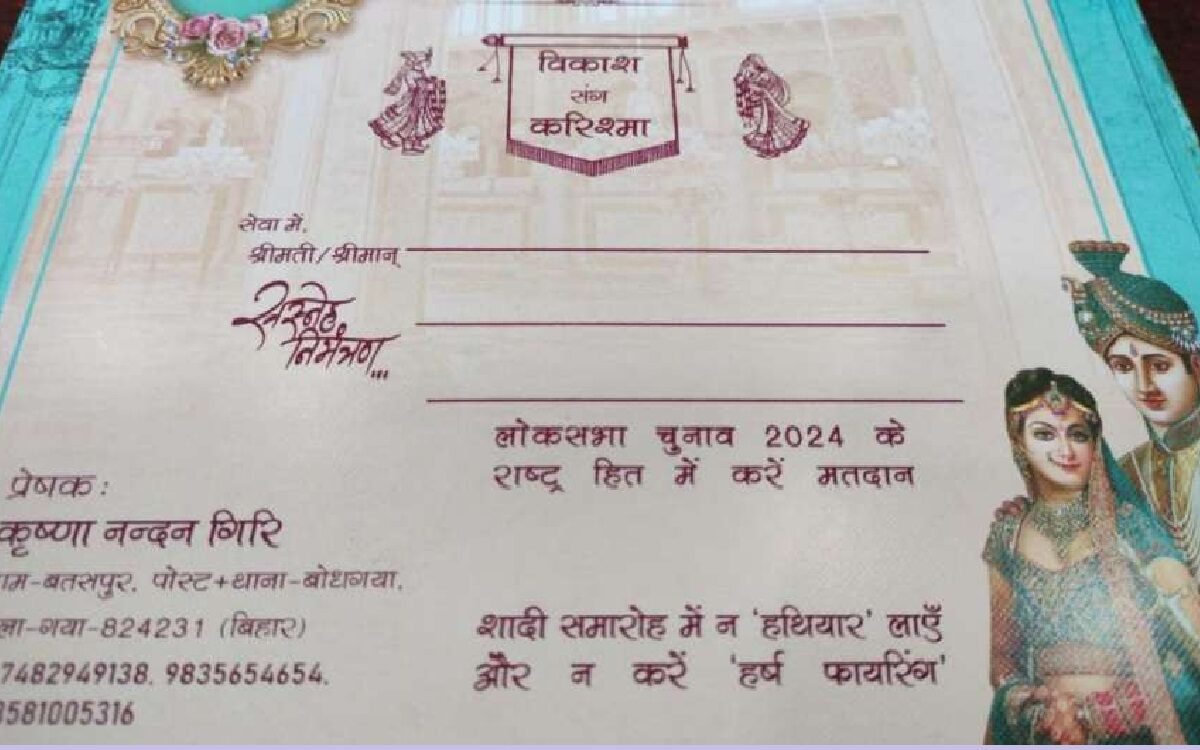 विकाश
संग
करिश्मा
सेवा में,
श्रीमती/श्रीमान्
सस्नेह
निमंत्रण...
लोकसभा चुनाव 2024 के
राष्ट्र हित में करें मतदान
प्रेषक:
कृष्णा नन्दन गिरि
ाम-बतसपुर, पोस्ट+थाना-बोधगया,
ला-गया-824231 (बिहार)
7482949138, 9835654654,
8581005316
शादी समारोह में न 'हथियार' लाएँ
और न करें 'हर्ष फायरिंग'